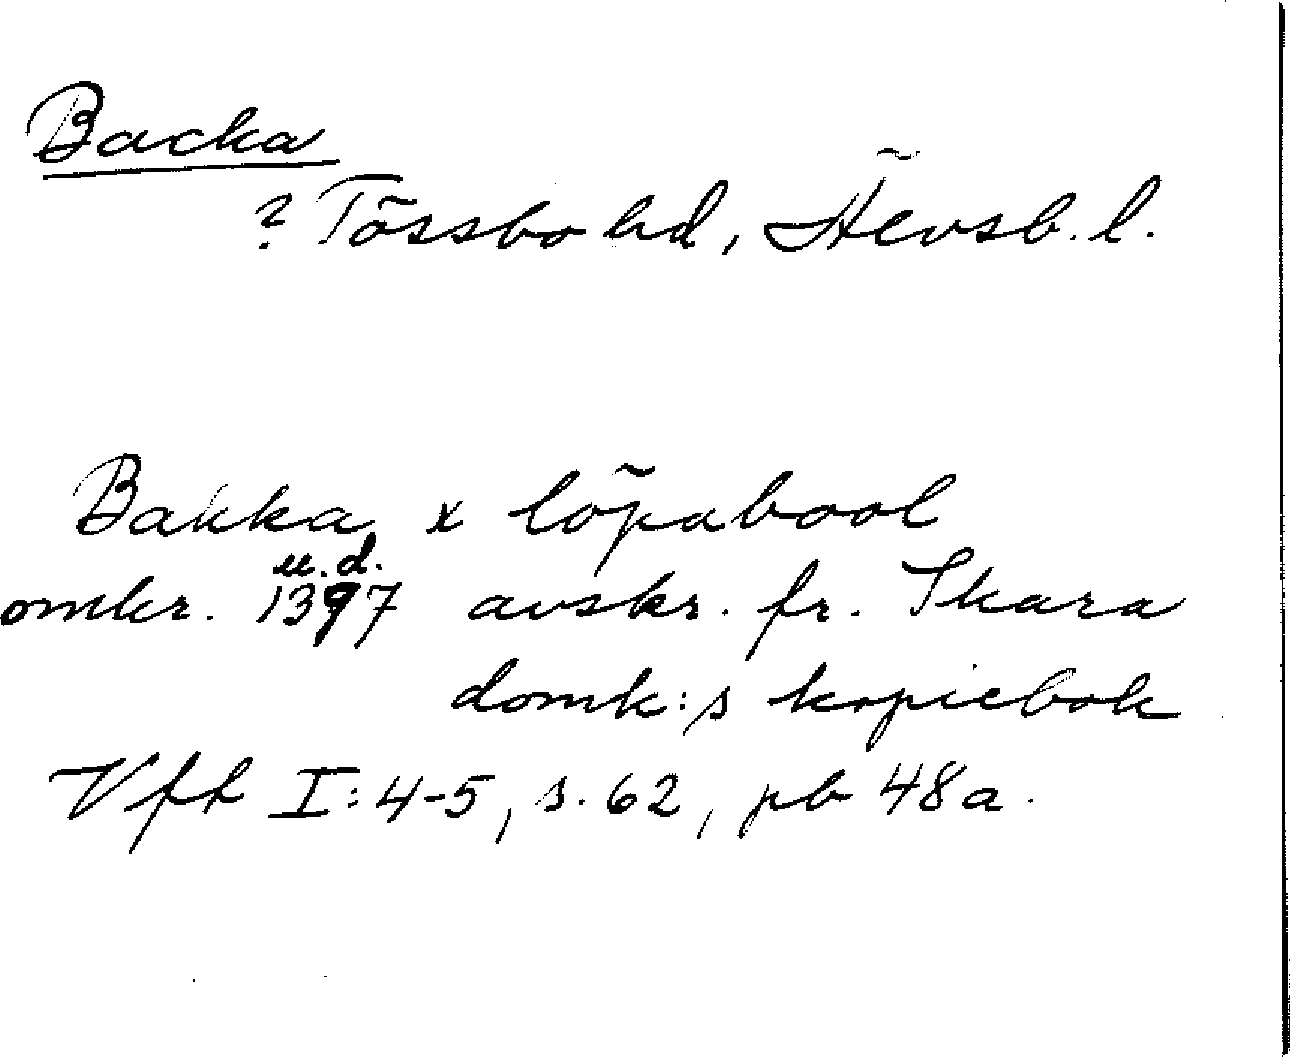 Backa
? Tössbo hd, Älvsb. l.
Bakka x löpabool
u.d.
omkr. 1397 avskr. fr. Skara
domk:s kopiebok
Vft I:4-5, s. 62, pb 48a.